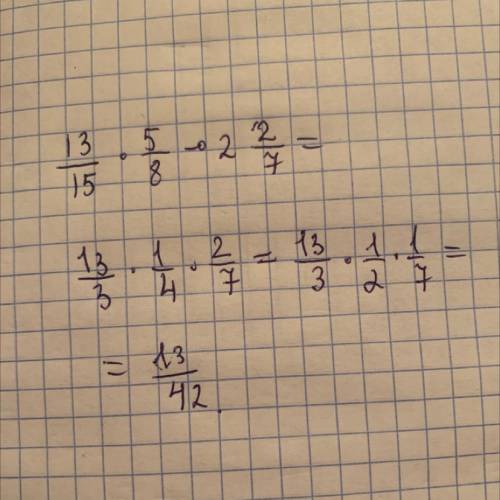 13/15 · 5/8 · 2 2/7 =
13/3 · 1/4 · 2/7 = 13/3 · 1/2 · 1/7 =
= 13/42.